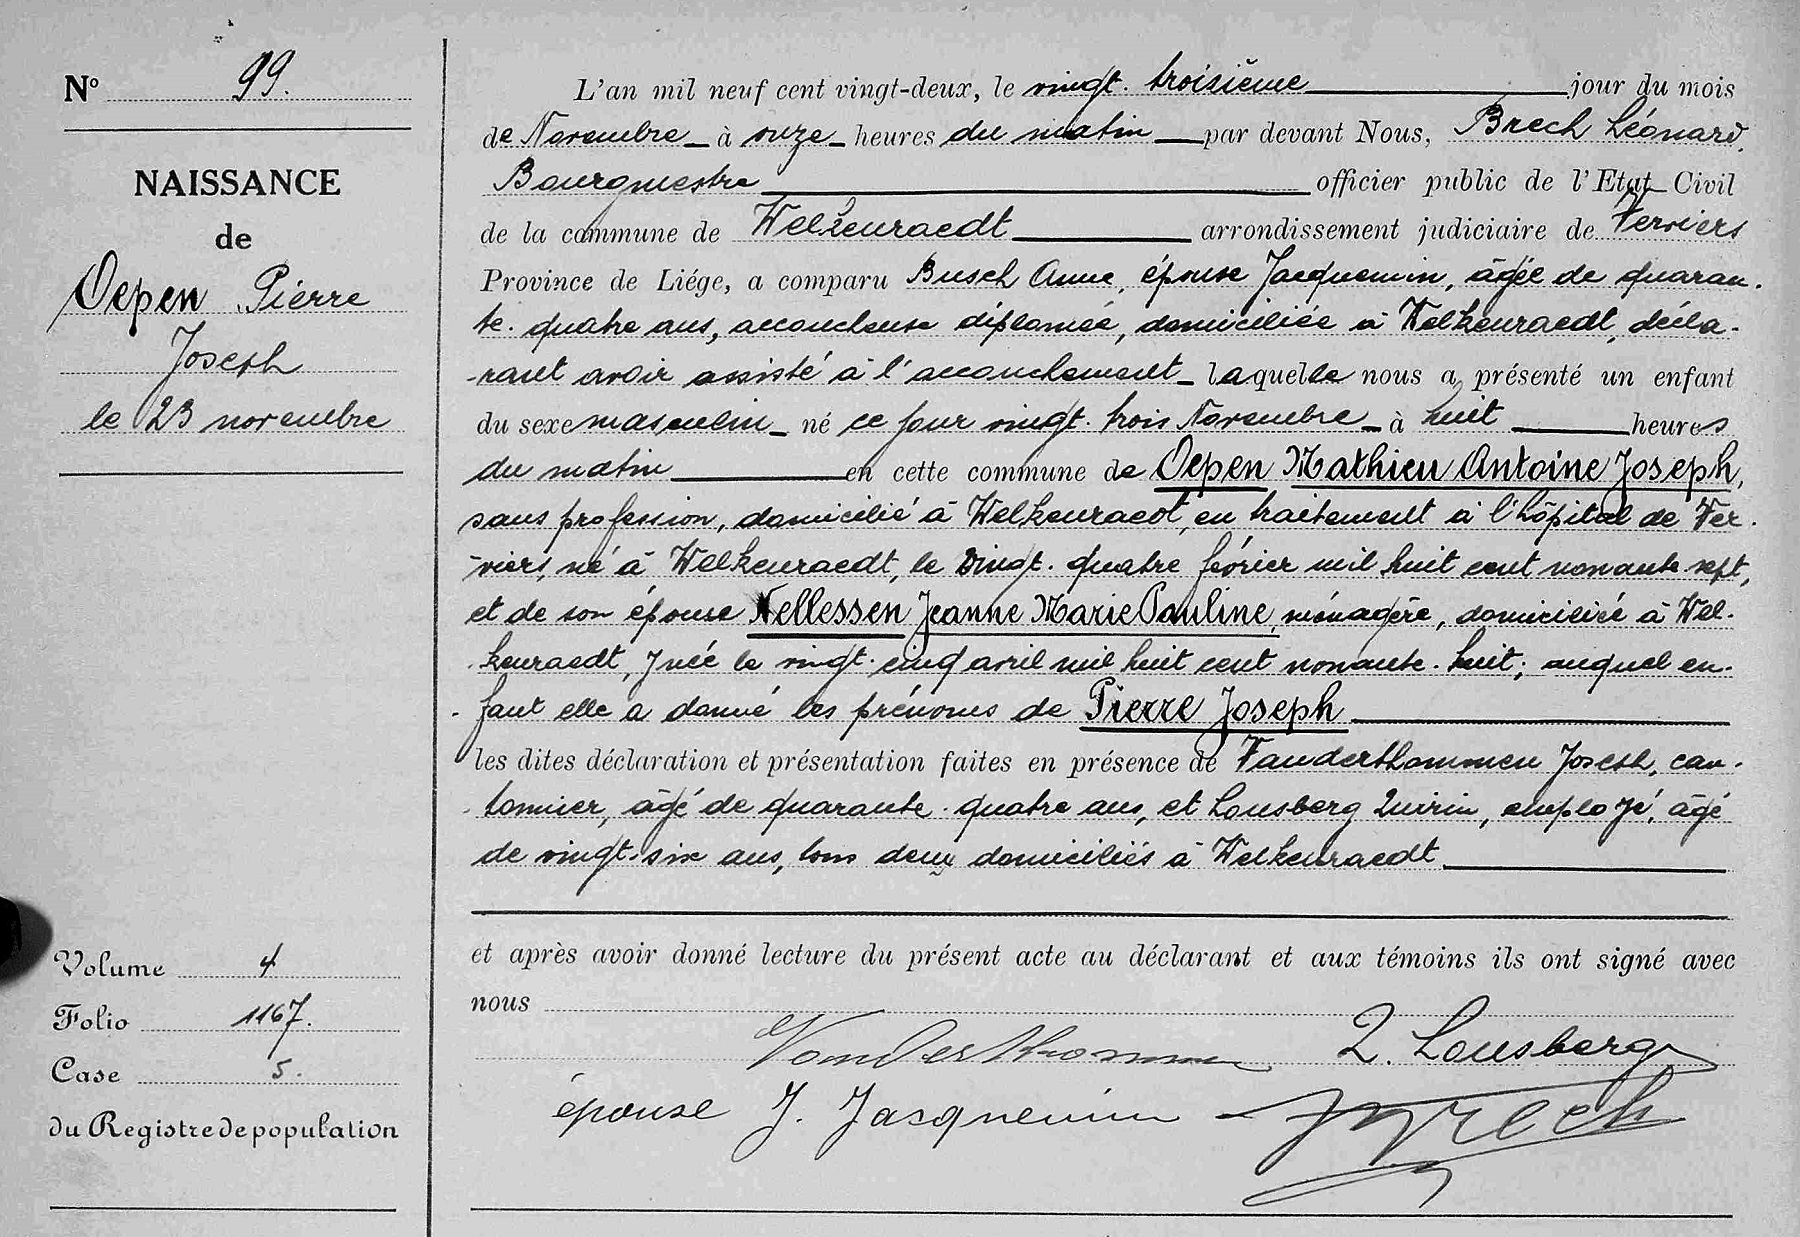 N° 99.
NAISSANCE
de
Oepen Pierre
Joseph
le 23 novembre
Volume 4
Folio 1167.
Case 5.
du Registre de population
L'an mil neuf cent vingt-deux, le vingt. troisième jour du mois
de Novembre à onze heures du matin par devant Nous, Brech Léonard,
Bourgmestre officier public de l'Etat Civil
de la commune de Welkenraedt arrondissement judiciaire de Verviers
Province de Liége, a comparu Busch Anne, épouse Jacquemin, âgée de quaran-
te. quatre ans, accoucheuse diplomée, domiciliée à Welkenraedt, décla-
rant avoir assisté à l'accouchement laquelle nous a présenté un enfant
du sexe masculin né ce jour vingt. trois Novembre à huit heures
du matin en cette commune de Oepen Mathieu Antoine Joseph,
sans profession, domicilié à Welkenraedt, en traitement à l'hôpital de Ver-
viers, né à Welkenraedt, le vingt. quatre février mil huit cent nonante sept,
et de son épouse Nellessen Jeanne Marie Pauline, ménagère, domiciliée à Wel-
kenraedt, y née le vingt. cinq avril mil huit cent nonante. huit; auquel en-
fant elle a donné les prénoms de Pierre Joseph
les dites déclaration et présentation faites en présence de Vanderthommen Joseph, can-
tonnier, âgé de quarante. quatre ans, et Lousberg Quirin, employé, âgé
de vingt. six ans, tous deux domiciliés à Welkenraedt
et après avoir donné lecture du présent acte au déclarant et aux témoins ils ont signé avec
nous
Vanderthommen Q. Lousberg
épouse J. Jacquemin Brech